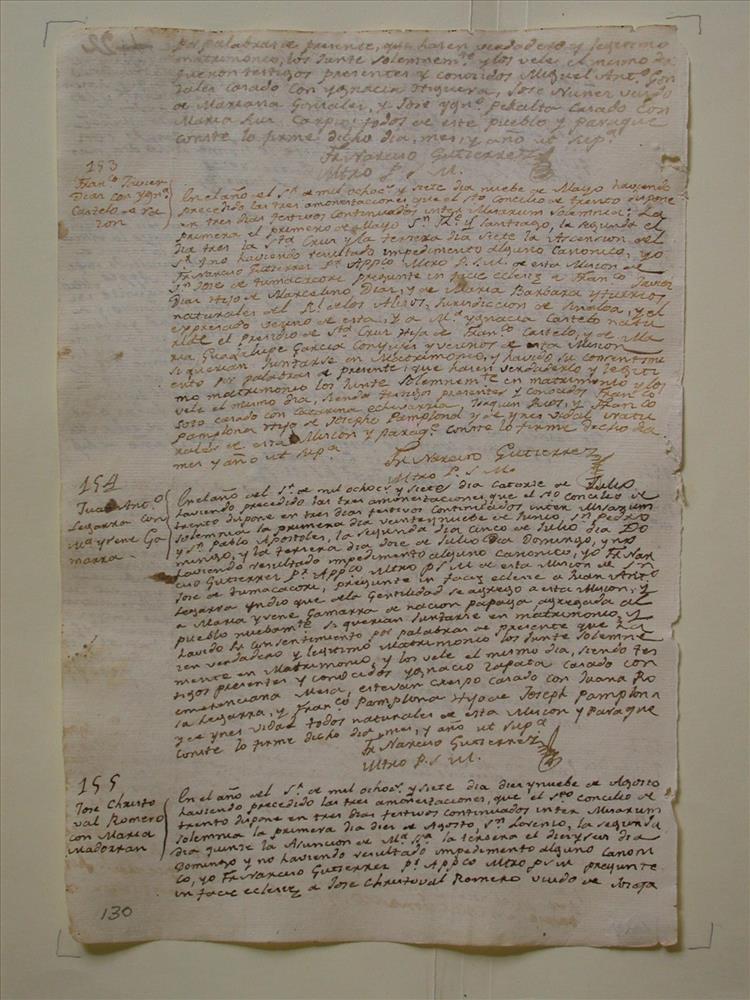 por palabras de presente, que hasen verdadero y lexitimo
matrimonio, los Junte Solemnem.te y los vele el mismo dia
fueron testigos presentes y conosidos Miguel Ant.o Gon
zales casado con Ygnacia Higuera, Jose Nuñez viudo
de Mariana Gonzales, y Jose Ygn.o Peralta casado con
Maria Luz Carpio, todos de este pueblo y paraque
conste lo firme dicho dia, mes, y año ut sup.a
Fr Narciso Gutierrez
Mtro P. S. M.
153
Fran.co Xavier
Dias con Ygn.a
Castelo de ra
zon
En el año del S.r de mil ochoc.s y siete dia nuebe de Mayo haviendo
precedido las tres amonestaciones que el s.to Concilio de trento dispone
en tres dias festivos continuados inter Missarum solemnia: La
primera el primero de Mayo S.n Ph.e y Santiago, la segunda el
dia tres la S.ta Cruz y la tersera dia siete la Ascencion del
S.r y no haviendo resultado impedimento alguno Canonico, yo
Fr Narciso Gutierrez P.r App.co Mtro P.S.M. de esta Mision de
S.n Jose de tumacacori presunte in facie eclesiæ a Fran.co Xavier
Dias Hijo de Marcelino Dias, y de Maria Barbara Yturrios
naturales del R.l de los Alisos, Jurisdiccion de Sinaloa, y el
expresado vecino de esta, y a M.a Ygnacia Castelo natu
ral de el presidio de S.ta Cruz Hija de Fran.co Castelo, y de Ma
ria Guadalupe Garcia Conyuges y vecinos de esta Mision
si querian Juntarse en Matrimonio, y havido su consentimi
ento por palabras de presente, que hasen verdadero y legiti
mo matrimonio los Junte Solemnem.te en matrimonio y los
vele el mismo dia, siendo testigos presentes y conosidos Fran.co
Soto casado con Catarina echevarria, Joaquin Rios, y Fran.co
Pamplona Hijo de Josephe Pamplona y de ynes Vidal natu
rales de esta Mision y paraq.e conste lo firme dicho dia
mes y año ut Sup.a
Fr Narciso Gutierrez
Mtro P. S. M.
154
Juan Ant.o
Legarra con
M.a yrene Ga
marra
En el año del S.r de mil ochoc.s y siete dia catorse de Julio
haviendo precedido las tres amonestaciones, que el s.to concilio de
trento dispone en tres dias festivos continuados inter Missarum
Solemnia la primera dia veinteynuebe de Junio S.n Pedro
y S.n Pablo Apostoles, la segunda dia cinco de Julio dia Do
mingo, y la tersera dia dose de Julio Dia Domingo, y no
haviendo resultado impedimento alguno canonico, yo Fr Nar
ciso Gutierrez P.r App.co Mtro P S M de esta Mision de S.n
Jose de tumacacori, presunte in facie eclesiæ a Juan Ant.o
Legarra Yndio que de la Gentilidad se agrego a esta Mision, y
a Maria yrene Gamarra de nacion papaga agregada al
pueblo nuebam.te si querian Juntarse en matrimonio, y
havido su consentimiento por palabras de presente que ha
zen verdadero y legitimo Matrimonio los Junte Solemne
mente en Matrimonio, y los vele el mismo dia, siendo tes
tigos presentes y conosidos Ygnacio Zapata casado con
emerenciana Mesa, estevan Crespo casado con Juana Ro
sa Legarra, y Fran.co Pamplona Hijo de Joseph Pamplona
y de ynes vidal todos naturales de esta Mision y paraque
conste lo firme dicho dia, mes, y año ut Sup.a
Fr Narciso Gutierrez
Mtro P. S. M.
155
Jose Christo
val Romero
con Maria
Madorran
En el año del S.r de mil ochoc.s y siete dia diez y nuebe de Agosto
haviendo precedido las tres amonestaciones, que el s.to concilio de
trento dispone en tres dias festivos continuados inter Missarum
Solemnia la primera dia dies de Agosto S.n Lorenso, la segunda
dia quinse la Asuncion de M.a S.ma la tersera el diez y seis dia
Domingo y no haviendo resultado impedimento alguno canoni
co, yo Fr Narciso Gutierrez P.r App.co Mtro P S M presunte
in facie eclesiæ a Jose Christoval Romero viudo de
130